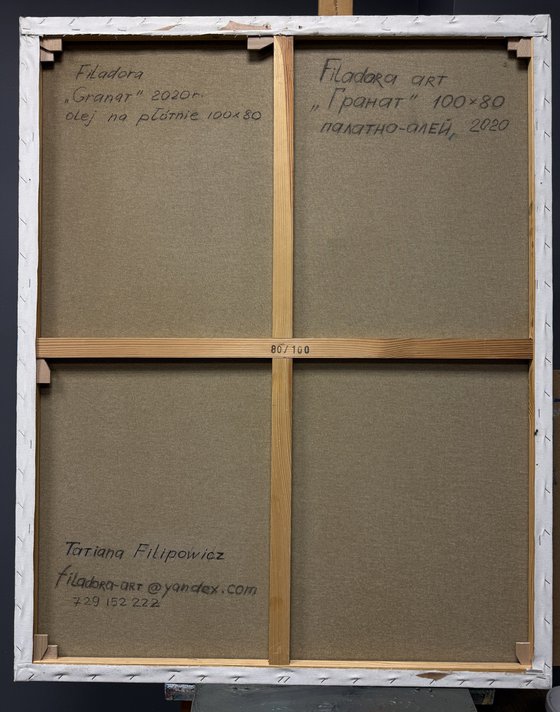 Filadora
„Granat" 2020r.
olej na płótnie 100×80
Filadora art
„Гранат" 100×80
палатно-алей, 2020
80/100
Tatiana Filipowicz
filadora-art@yandex.com
729 152 222